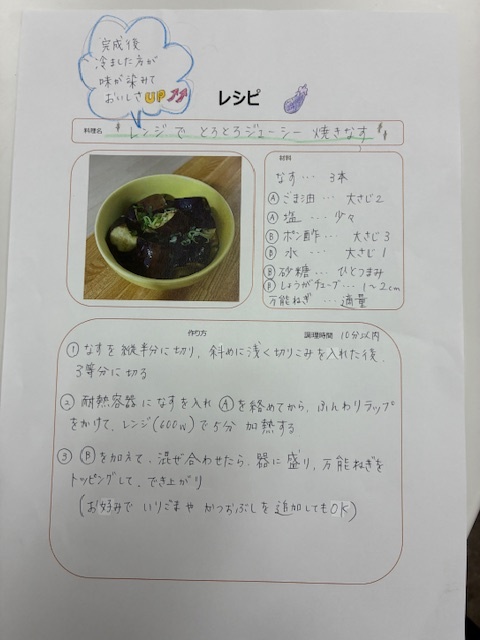 完成後
冷ました方が
味が染みて
おいしさUP
レシピ
料理名 レンジで とろとろジューシー 焼きなす
材料
なす… 3本
Ⓐごま油… 大さじ2
Ⓐ塩 … 少々
Ⓑポン酢… 大さじ3
Ⓑ水 … 大さじ1
Ⓑ砂糖… ひとつまみ
Ⓑしょうがチューブ… 1〜2cm
万能ねぎ… 適量
作り方 調理時間 10分以内
① なすを縦半分に切り、斜めに浅く切りこみを入れた後、
3等分に切る
② 耐熱容器になすを入れⒶを絡めてから、ふんわりラップ
をかけて、レンジ(600w)で5分 加熱する
③ Ⓑを加えて、混ぜ合わせたら、器に盛り、万能ねぎを
トッピングして、でき上がり
(お好みで いりごまや かつおぶしを追加してもOK)